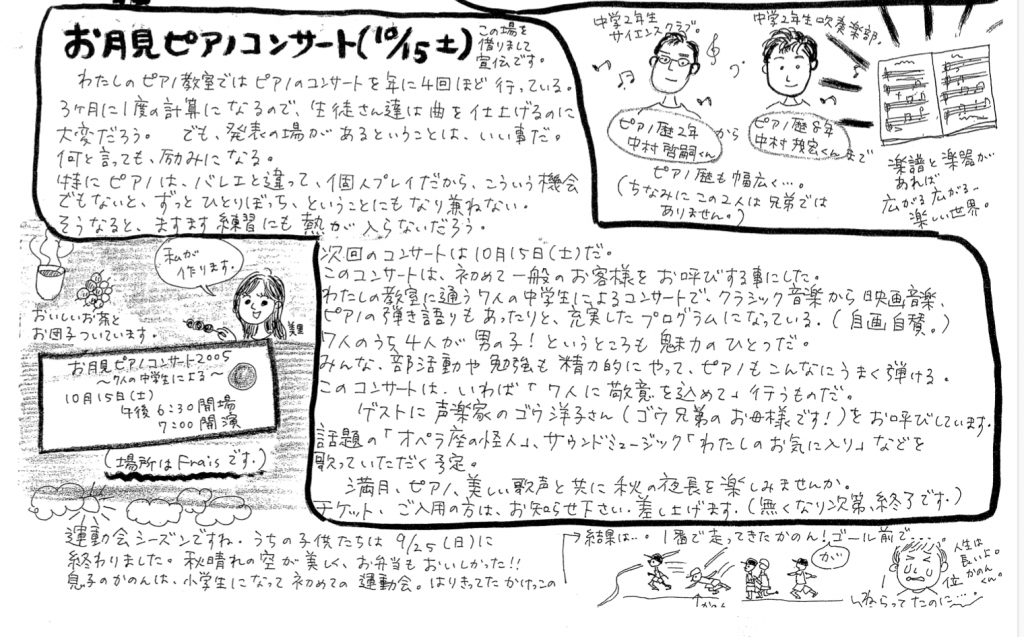 お月見ピアノコンサート(10/15土)
この場を
借りまして
宣伝です。
わたしのピアノ教室ではピアノのコンサートを年に4回ほど行っている。
3ヶ月に1度の計算になるので、生徒さん達は曲を仕上げるのに
大変だろう。でも、発表の場があるということは、いい事だ。
何と言っても、励みになる。
特にピアノは、バレエと違って、個人プレイだから、こういう機会
でもないと、ずっとひとりぼっち、ということにもなり兼ねない。
そうなると、ますます練習にも熱が入らないだろう。
中学2年生
サイエンスクラブ
中学2年生吹奏楽部
ピアノ歴2年
中村啓嗣くん
から
ピアノ歴8年
中村 宏くん
まで
ピアノ歴も幅広く…。
(ちなみにこの2人は兄弟では
ありません。)
楽譜と楽器が
あれば
広がる広がる〜
楽しい世界。
私が
作ります。
美里
おいしいお茶と
お団子ついています。
お月見ピアノコンサート2005
〜7人の中学生による〜
10月15日(土)
午後6:30開場
7:00開演
(場所はFraisです。)
次回のコンサートは10月15日(土)だ。
このコンサートは、初めて一般のお客様をお呼びする事にした。
わたしの教室に通う7人の中学生によるコンサートで、クラシック音楽から映画音楽、
ピアノの弾き語りもあったりと、充実したプログラムになっている。(自画自賛。)
7人のうち4人が男の子!というところも魅力のひとつだ。
みんな、部活動や勉強も精力的にやって、ピアノもこんなにうまく弾ける。
このコンサートは、いわば「7人に敬意を込めて」行うものだ。
ゲストに声楽家のゴウ洋子さん(ゴウ兄弟のお母様です!)をお呼びしています。
話題の「オペラ座の怪人」、サウンドミュージック「わたしのお気に入り」などを
歌っていただく予定。
満月、ピアノ、美しい歌声と共に秋の夜長を楽しみませんか。
チケット、ご入用の方は、お知らせ下さい。差し上げます。(無くなり次第、終了です。)
運動会シーズンですね。うちの子供たちは9/25(日)に
終わりました。秋晴れの空が美しく、お弁当もおいしかった!!
息子のかのんは、小学生になって初めての運動会。はりきってたかけっこの
結果は…。1番で走ってきたかのん!ゴール前で……
かのん
が
位
ねらってたのに…
人生は
長いよ。
かのん
くん。